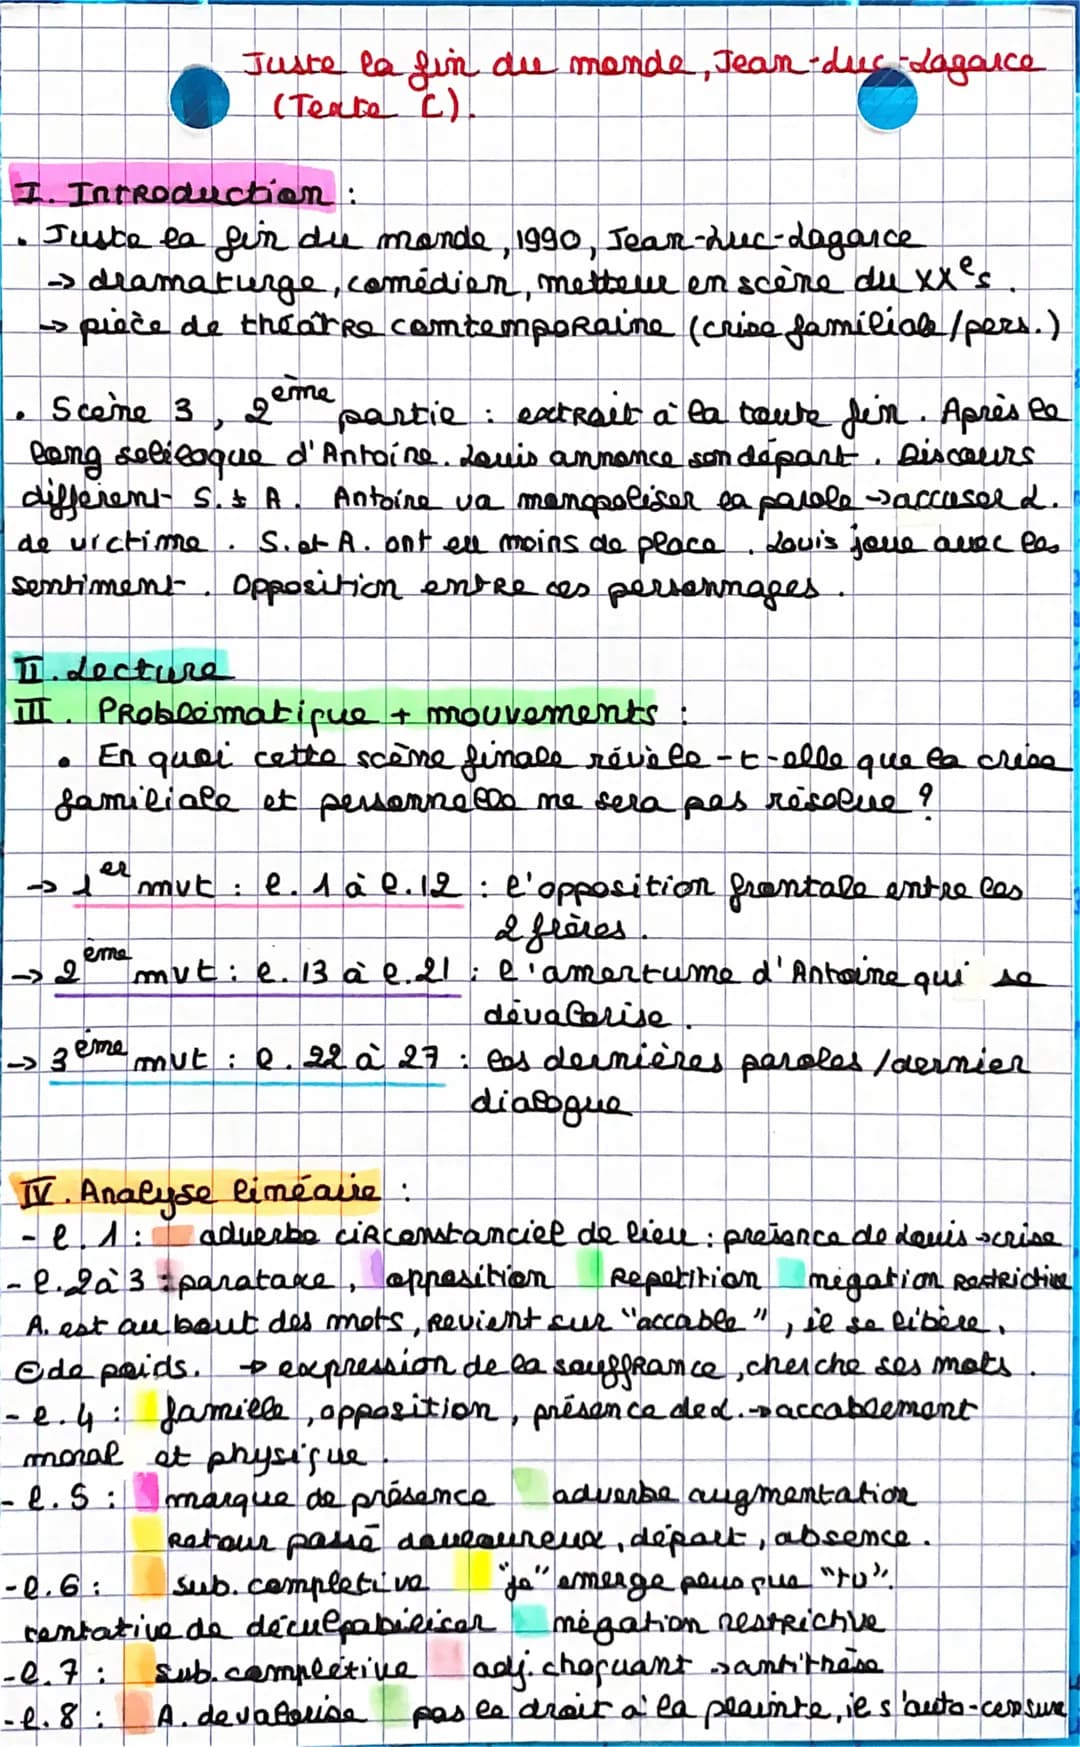 Juste la fin du monde, Jean-Luc-Lagarce
(Texte C).
I. Introduction :
• Juste la fin du monde, 1990, Jean-Luc-Lagarce
-> dramaturge, comédien, metteur en scène du XXe s.
-> pièce de théâtre contemporaine (crise familiale/pers.)
• Scène 3, 2ème partie : extrait à la toute fin. Après le
long soliloque d'Antoine. Louis annonce son départ. Discours
différent S. & A. Antoine va monopoliser la parole -> accuser L.
de victime. S. et A. ont eu moins de place. Louis joue avec les
sentiment. Opposition entre ces personnages.
II. Lecture
III. Problématique + mouvements :
• En quoi cette scène finale révèle-t-elle que la crise
familiale et personnelle ne sera pas résolue ?
-> 1er mvt : l. 1 à l. 12 : l'opposition frontale entre les
2 frères.
-> 2ème mvt : l. 13 à l. 21 : l'amertume d'Antoine qui se
dévalorise.
-> 3ème mvt : l. 22 à 27 : les dernières paroles /dernier
dialogue
IV. Analyse linéaire :
- l. 1 : adverbe circonstanciel de lieu : présence de Louis -> crise
- l. 2 à 3 : parataxe, opposition Répétition négation Restrictive
A. est au bout des mots, Revient sur "accable", il se libère,
⊖ de poids. -> expression de la souffrance, cherche ses mots.
- l. 4 : famille, opposition, présence de L. -> accablement
moral et physique.
- l. 5 : marque de présence adverbe augmentation
Retour passé douloureux, départ, absence.
- l. 6 : sub. complétive "je" émerge plus que "tu".
tentative de déculpabiliser négation restrictive
- l. 7 : sub. complétive adj. choquant -> antithèse
- l. 8 : A. dévalorise pas le droit à la plainte, il s'auto-censure